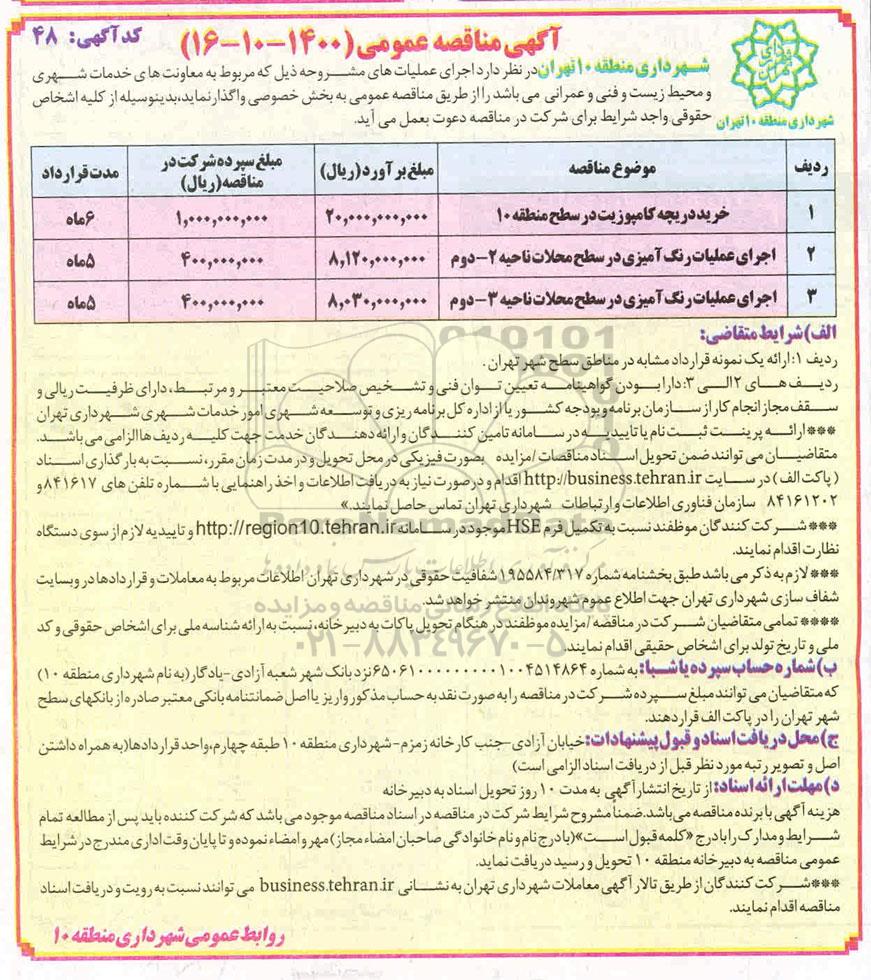 آگهی مناقصه عمومی (۱۴۰۰-۱۰-۱۶)
کد آگهی: ۴۸
شهرداری منطقه ۱۰ تهران
شهرداری منطقه ۱۰ تهران در نظر دارد اجرای عملیات های مشروحه ذیل که مربوط به معاونت های خدمات شهری
و محیط زیست و فنی و عمرانی می باشد را از طریق مناقصه عمومی به بخش خصوصی واگذار نماید، بدینوسیله از کلیه اشخاص
حقوقی واجد شرایط برای شرکت در مناقصه دعوت بعمل می آید.
ردیف موضوع مناقصه مبلغ برآورد (ریال) مبلغ سپرده شرکت در مناقصه (ریال) مدت قرارداد
۱ خرید دریچه کامپوزیت در سطح منطقه ۱۰ ۲۰,۰۰۰,۰۰۰,۰۰۰ ۱,۰۰۰,۰۰۰,۰۰۰ ۶ماه
۲ اجرای عملیات رنگ آمیزی در سطح محلات ناحیه ۲-دوم ۸,۱۲۰,۰۰۰,۰۰۰ ۴۰۰,۰۰۰,۰۰۰ ۵ماه
۳ اجرای عملیات رنگ آمیزی در سطح محلات ناحیه ۳-دوم ۸,۰۳۰,۰۰۰,۰۰۰ ۴۰۰,۰۰۰,۰۰۰ ۵ماه
الف) شرایط متقاضی:
ردیف ۱: ارائه یک نمونه قرارداد مشابه در مناطق سطح شهر تهران.
ردیف های ۲ الی ۳: دارا بودن گواهینامه تعیین توان فنی و تشخیص صلاحیت معتبر و مرتبط، دارای ظرفیت ریالی و
سقف مجاز انجام کار از سازمان برنامه و بودجه کشور یا از اداره کل برنامه ریزی و توسعه شهری امور خدمات شهری شهرداری تهران
*** ارائه پرینت ثبت نام یا تاییدیه در سامانه تامین کنندگان و ارائه دهندگان خدمت جهت کلیه ردیف ها الزامی می باشد.
متقاضیان می توانند ضمن تحویل اسناد مناقصات /مزایده بصورت فیزیکی در محل تحویل و در مدت زمان مقرر، نسبت به بارگذاری اسناد
(پاکت الف) در سایت http://business.tehran.ir اقدام و در صورت نیاز به دریافت اطلاعات و اخذ راهنمایی با شماره تلفن های ۸۴۱۶۱۷ و
۸۴۱۶۱۲۰۲ سازمان فناوری اطلاعات و ارتباطات شهرداری تهران تماس حاصل نمایند.»
*** شرکت کنندگان موظفند نسبت به تکمیل فرم HSE موجود در سامانه http://region10.tehran.ir و تاییدیه لازم از سوی دستگاه
نظارت اقدام نمایند.
*** لازم به ذکر می باشد طبق بخشنامه شماره ۱۹۵۵۸۴/۳۱۷ شفافیت حقوقی در شهرداری تهران اطلاعات مربوط به معاملات و قراردادها در وبسایت
شفاف سازی شهرداری تهران جهت اطلاع عموم شهروندان منتشر خواهد شد.
**** تمامی متقاضیان شرکت در مناقصه /مزایده موظفند در هنگام تحویل پاکات به دبیرخانه، نسبت به ارائه شناسه ملی برای اشخاص حقوقی و کد
ملی و تاریخ تولد برای اشخاص حقیقی اقدام نمایند.
ب) شماره حساب سپرده یا شبا: به شماره ۶۵۰۶۱۰۰۰۰۰۰۰۰۰۱۰۰۴۵۱۴۸۶۴ نزد بانک شهر شعبه آزادی-یادگار (به نام شهرداری منطقه ۱۰)
که متقاضیان می توانند مبلغ سپرده شرکت در مناقصه را به صورت نقد به حساب مذکور واریز یا اصل ضمانتنامه بانکی معتبر صادره از بانکهای سطح
شهر تهران را در پاکت الف قرار دهند.
ج) محل دریافت اسناد و قبول پیشنهادات: خیابان آزادی-جنب کارخانه زمزم-شهرداری منطقه ۱۰ طبقه چهارم، واحد قراردادها (به همراه داشتن
اصل و تصویر رتبه مورد نظر قبل از دریافت اسناد الزامی است)
د) مهلت ارائه اسناد: از تاریخ انتشار آگهی به مدت ۱۰ روز تحویل اسناد به دبیرخانه
هزینه آگهی با برنده مناقصه می باشد. ضمناً مشروح شرایط شرکت در مناقصه در اسناد مناقصه موجود می باشد که شرکت کننده باید پس از مطالعه تمام
شرایط و مدارک را با درج «کلمه قبول است» (با درج نام و نام خانوادگی صاحبان امضاء مجاز) مهر و امضاء نموده و تا پایان وقت اداری مندرج در شرایط
عمومی مناقصه به دبیرخانه منطقه ۱۰ تحویل و رسید دریافت نماید.
*** شرکت کنندگان از طریق تالار آگهی معاملات شهرداری تهران به نشانی business.tehran.ir می توانند نسبت به رویت و دریافت اسناد
مناقصه اقدام نمایند.
روابط عمومی شهرداری منطقه ۱۰
۰۲۱-۸۸۳۴۹۶۷۰-۵